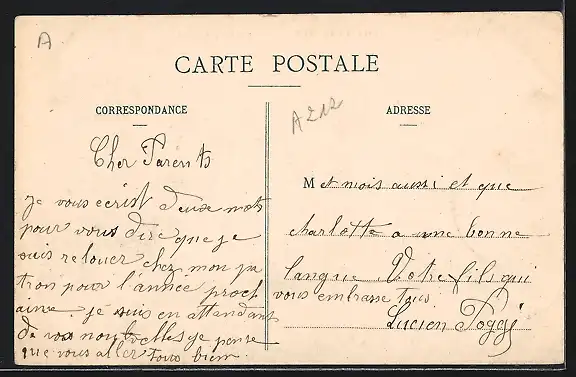 A
CARTE POSTALE
CORRESPONDANCE
Cher Parents
Je vous ecrist deux mots
pour vous dire que je
suis relouer chez mon pa
tron pour l'année proch
aine je suis en attendant
de vos nouvelles je pense
que vous aller tous bien
A 212
ADRESSE
M et mois aussi et que
charlotte a une bonne
langue Votre fils qui
vous embrasse tous
Lucien Poggi